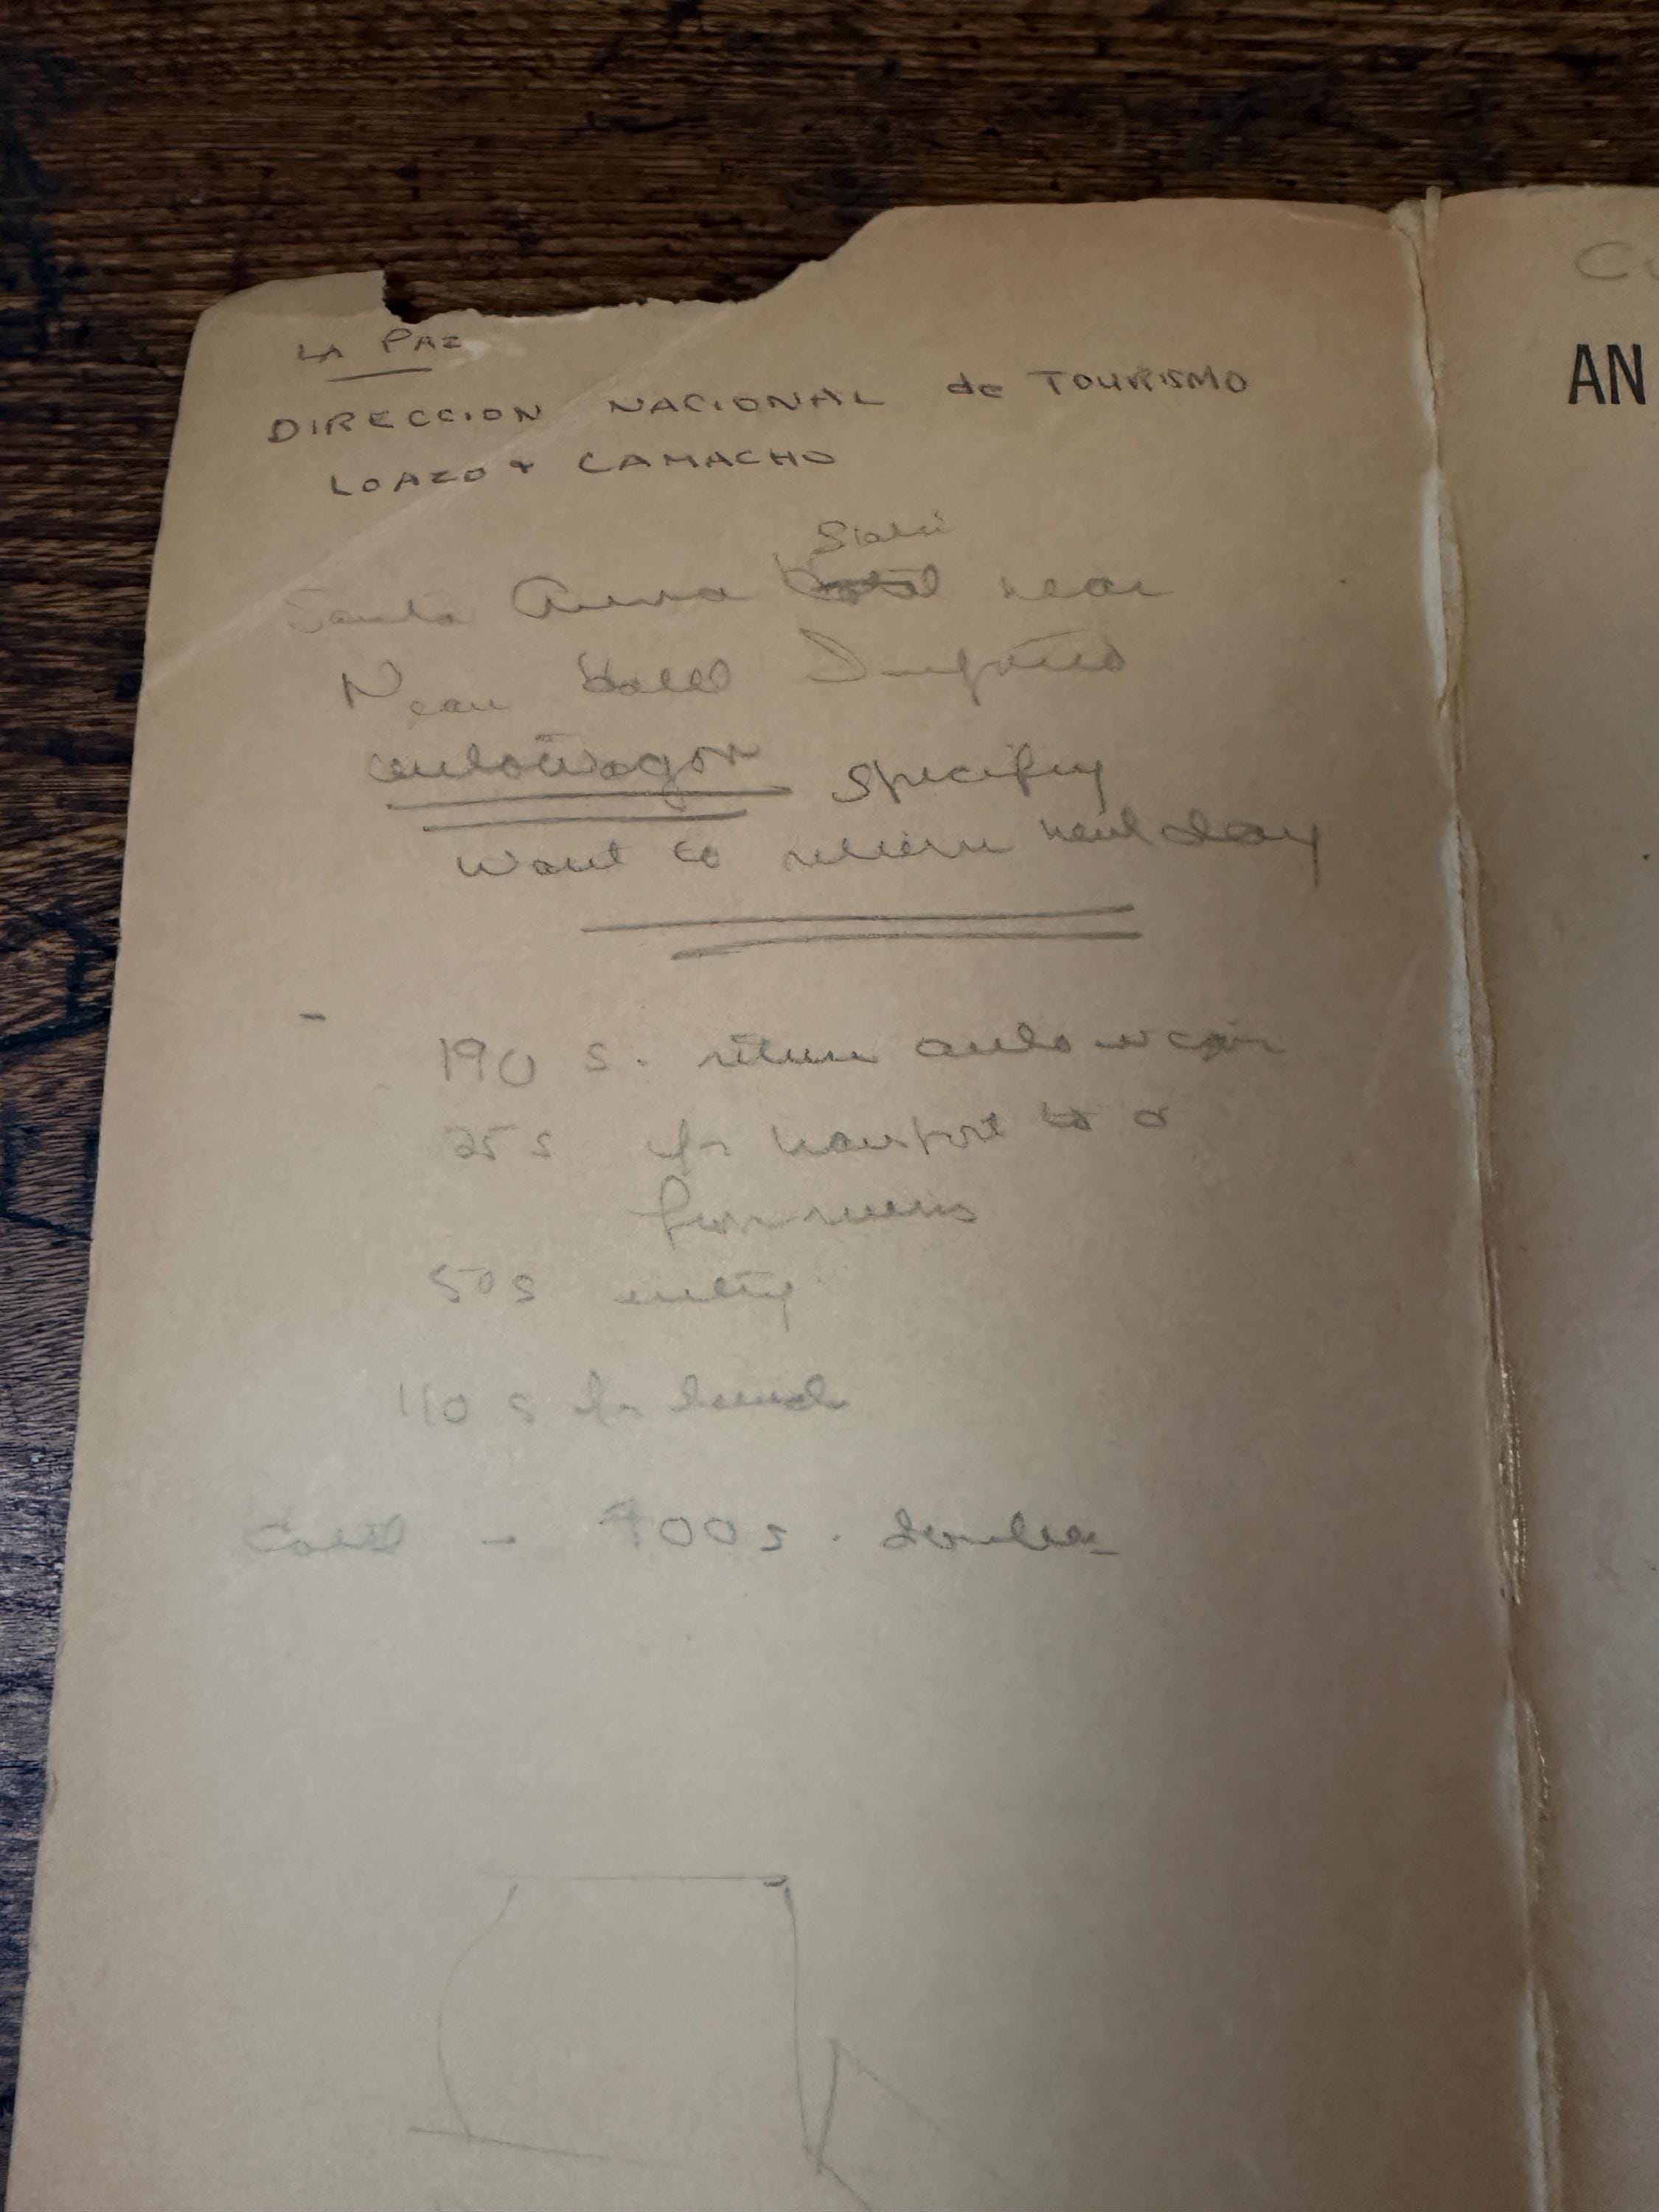 LA PAZ
DIRECCION NACIONAL de TOURISMO
LOAZO + CAMACHO
Santa Anna near
Near Hotel
autowagon specify
Want to return next day
190 s. return autowagon
25 s for transport to &
from ruins
50 s entry
110 s for lunch
Hotel - 700 s. double
AN